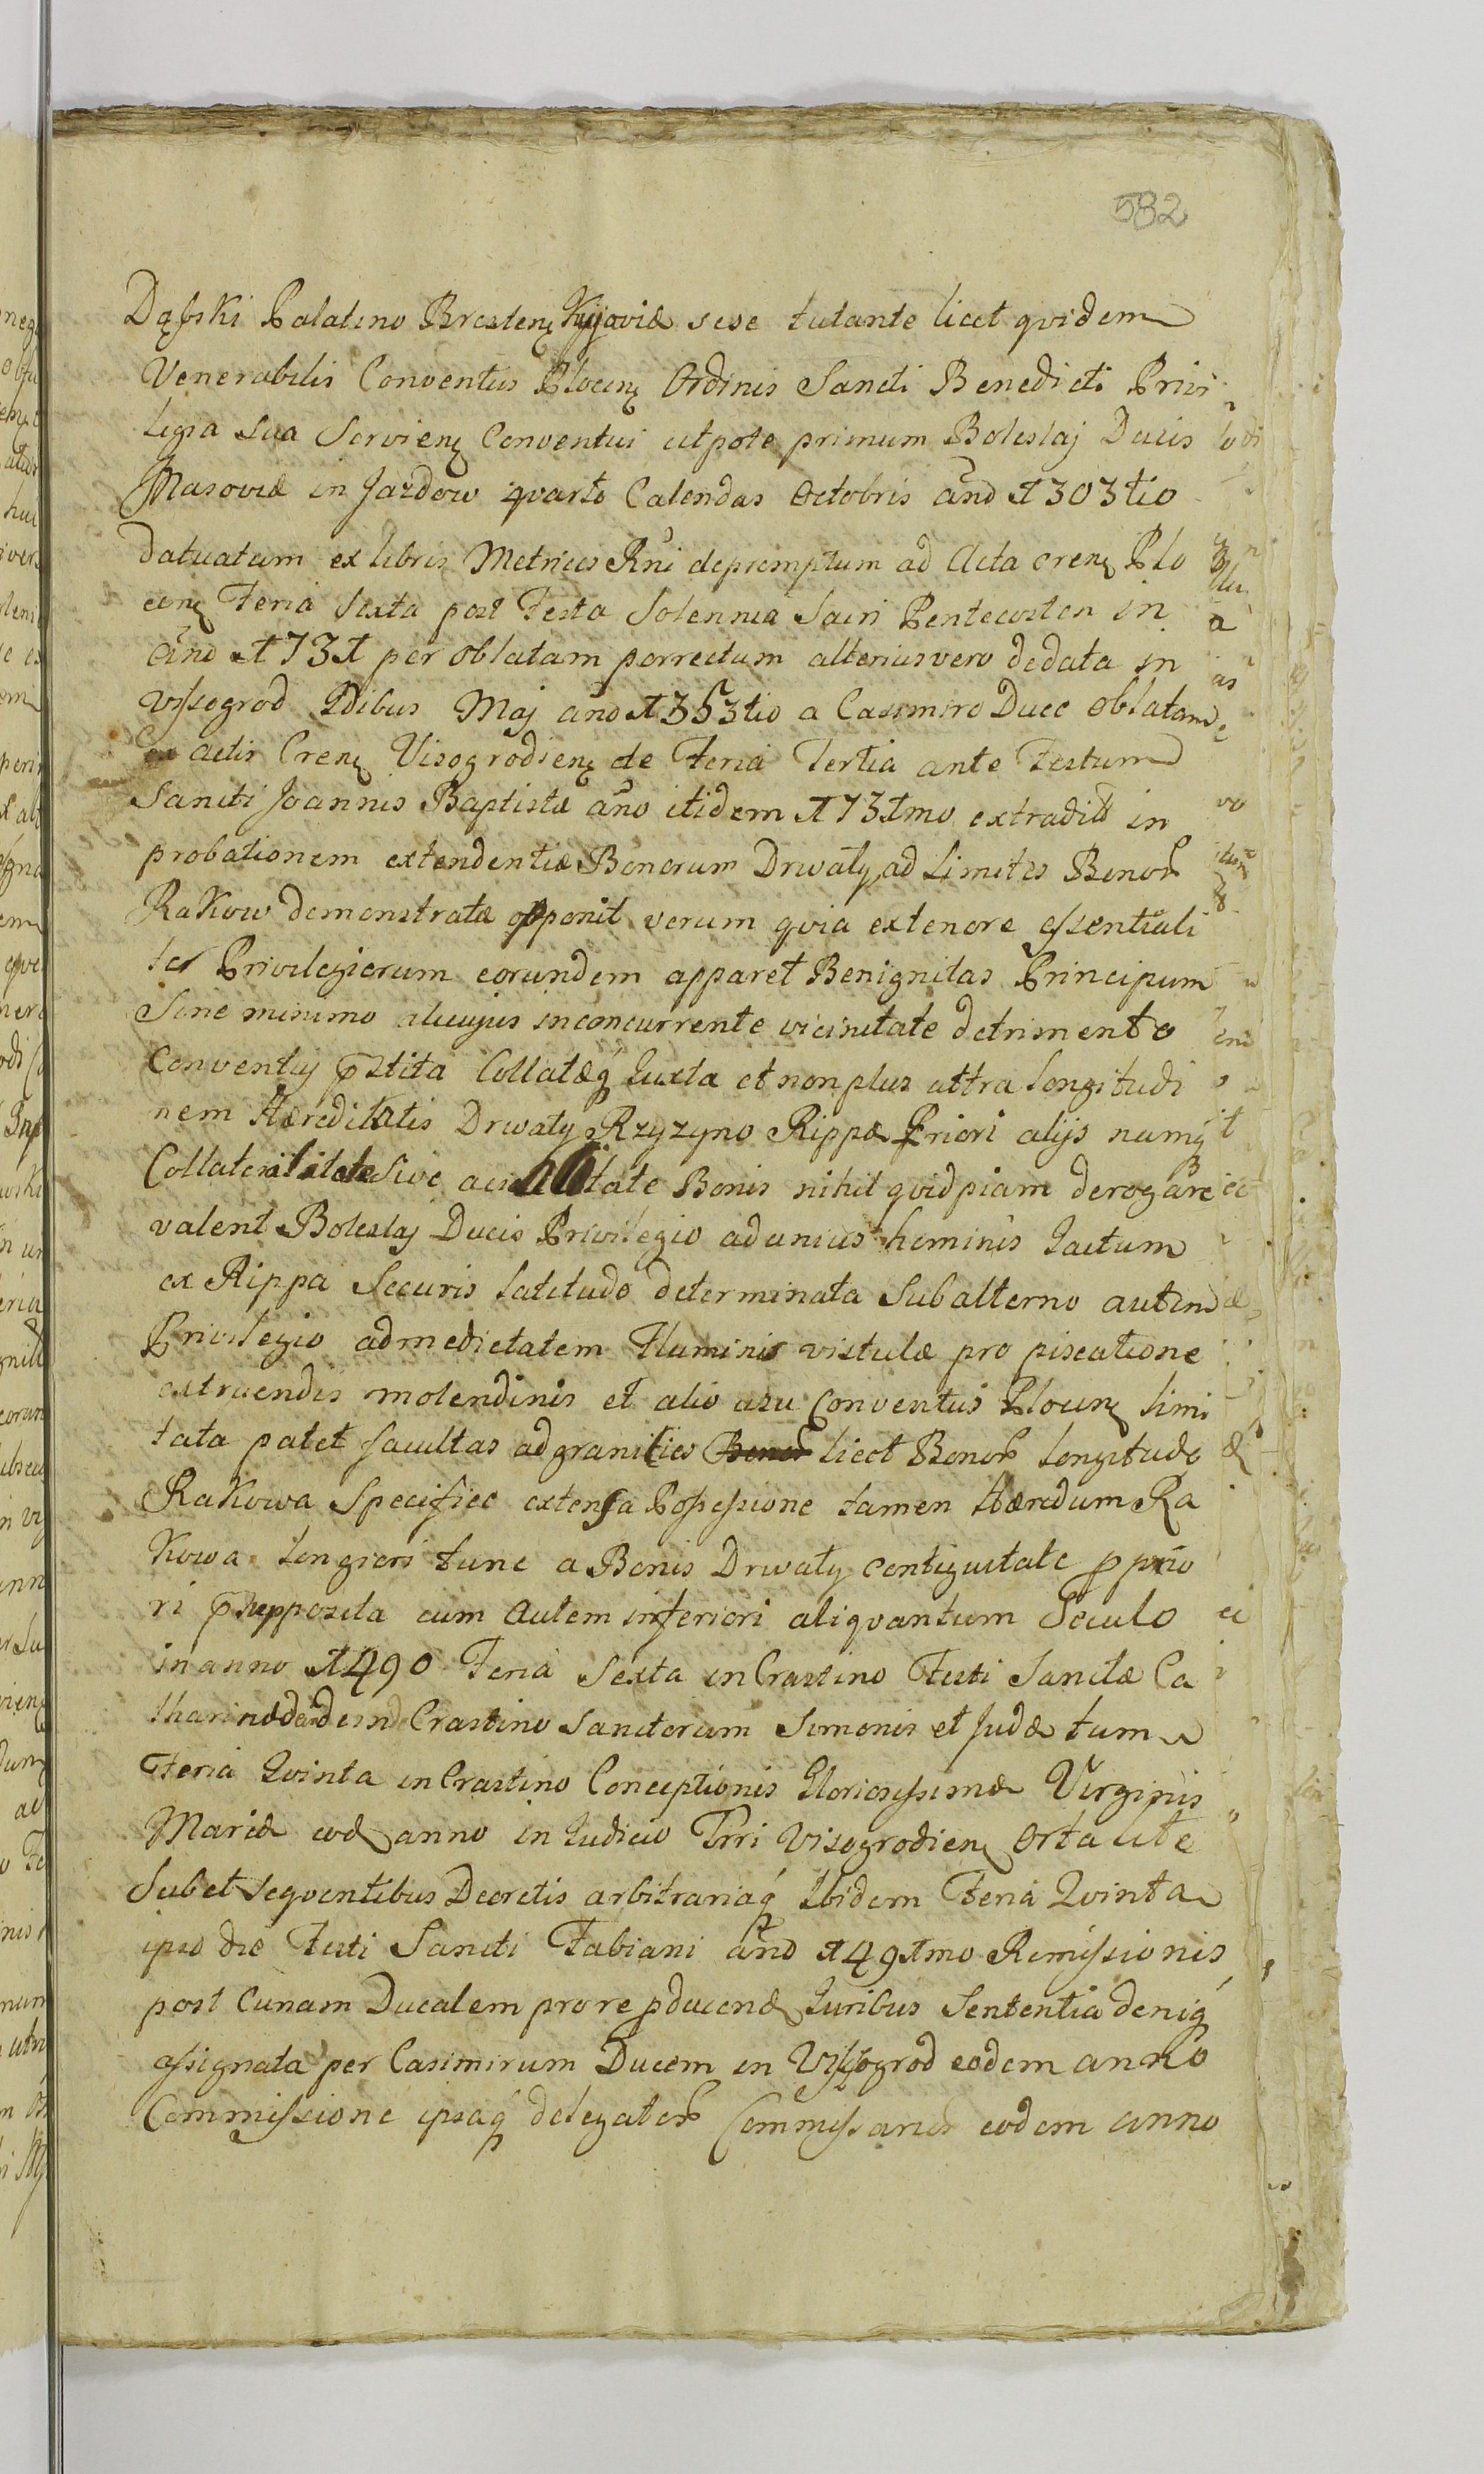 582
Dąbski Palatino Brestenȩ Kujaviæ sese tutante licet qvidem
Venerabilis Conventus Plocenȩ Ordinis Sancti Benedicti Privi
legia sua Servienȩ Conventui utpote primum Boleslaj Ducis
Masoviæ in Jazdow qvarto Calendas Octobris año 1303tio
datuatum ex libris Metrices Rni depromptum ad Acta Crenȩ Plo
cenȩ Feria Sexta post Festa Solennia Sacri Pentecosten in
año 1731 per oblatam porrectum alterius vero dedata in
Vissegrod Idibus Maj año 1353tio a Casimiro Duce Oblatam
ex actis Crenȩ Visogrodienȩ de Feria Tertia ante Festum
Sancti Joannis Baptistæ año itidem 1731mo extradit in
probationem extendentiæ Bonorum Drwały ad Limites Bonor
Rakow demonstratæ opponit verum qvia extenore essentiali
ter Privilegiorum eorundem apparet Benignitas Principum
Sine minimo alicujus inconcurrente vicinitate detrimento
Conventuj p̄stita Collatæq́ Iuxta et non plus attra longitudi
nem Hæreditatis Drwały Rzyzyno Rippæ Priori alijs
Collateralitate Sive Bonis nihil qvidpiam derogare
valent Boleslaj Ducis Privilegio ad unius hominis Iactum
ex Rippa Securis latitudo determinata Subalterno autem
Privilegio ad medietatem Fluminis vistulæ pro piscatione
extruendis molendinis et alio usu Conventus Plocenȩ limi
tata patet facultas ad granities licet Bonor longitudo
Rakowa Specifice extensa Possessione tamen Hæredum Ra
kowa longiori tunc a Bonis Drwały contiguitate
ri p̄supposita cum Autem inferiori aliqvantum Seculo
in anno 1490 Feria Sexta in Crastino Festi Sanctæ Ca
tharinæ Crastino Sanctorum Simonis et Judæ tum
Feria Qvinta in Crastino Conceptionis Gloriosissimæ Virginis
Mariæ eod anno in Iudicio Trri Visogrodienȩ Orta lite
Subet seqventibus Decretis arbitrariaq́ Ibidem Feria Qvinta
ipso die Festi Sancti Fabiani año 1491mo Remissionis
post Cunam Ducalem pro re pducend Iuribus Sententia deniq́
assignata per Casimirum Ducem in Vissogrod eodem anno
Commissione ipsaq́ delegator Commissarior eodem anno